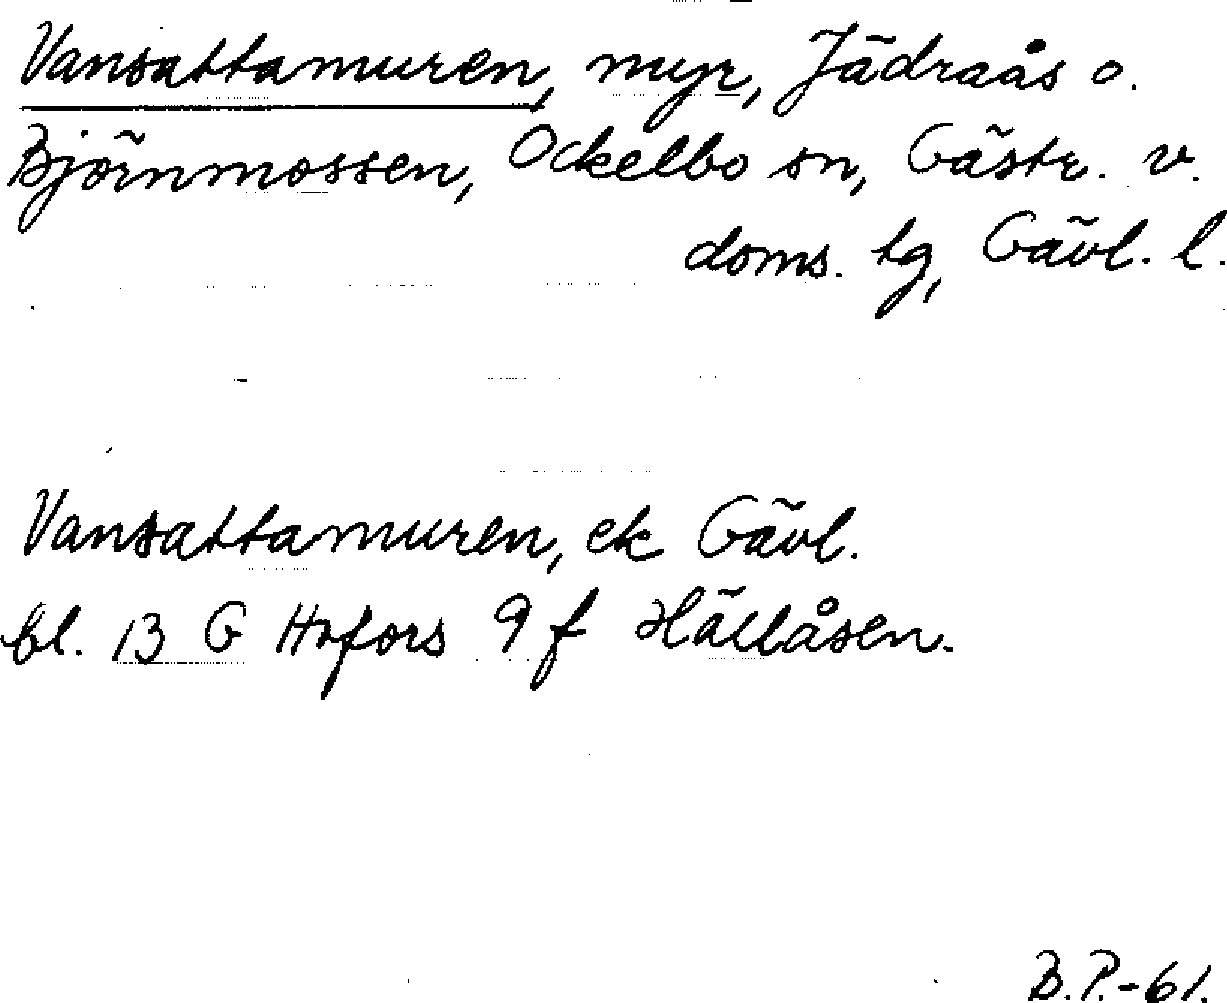 Vansattamuren, myr, Jädraås o.
Björnmossen, Ockelbo sn, Gästr. v.
doms. tg, Gävl. l.
Vansattamuren, ek Gävl.
bl. 13 G Hofors 9 f Hällåsen.
B.P.-61.